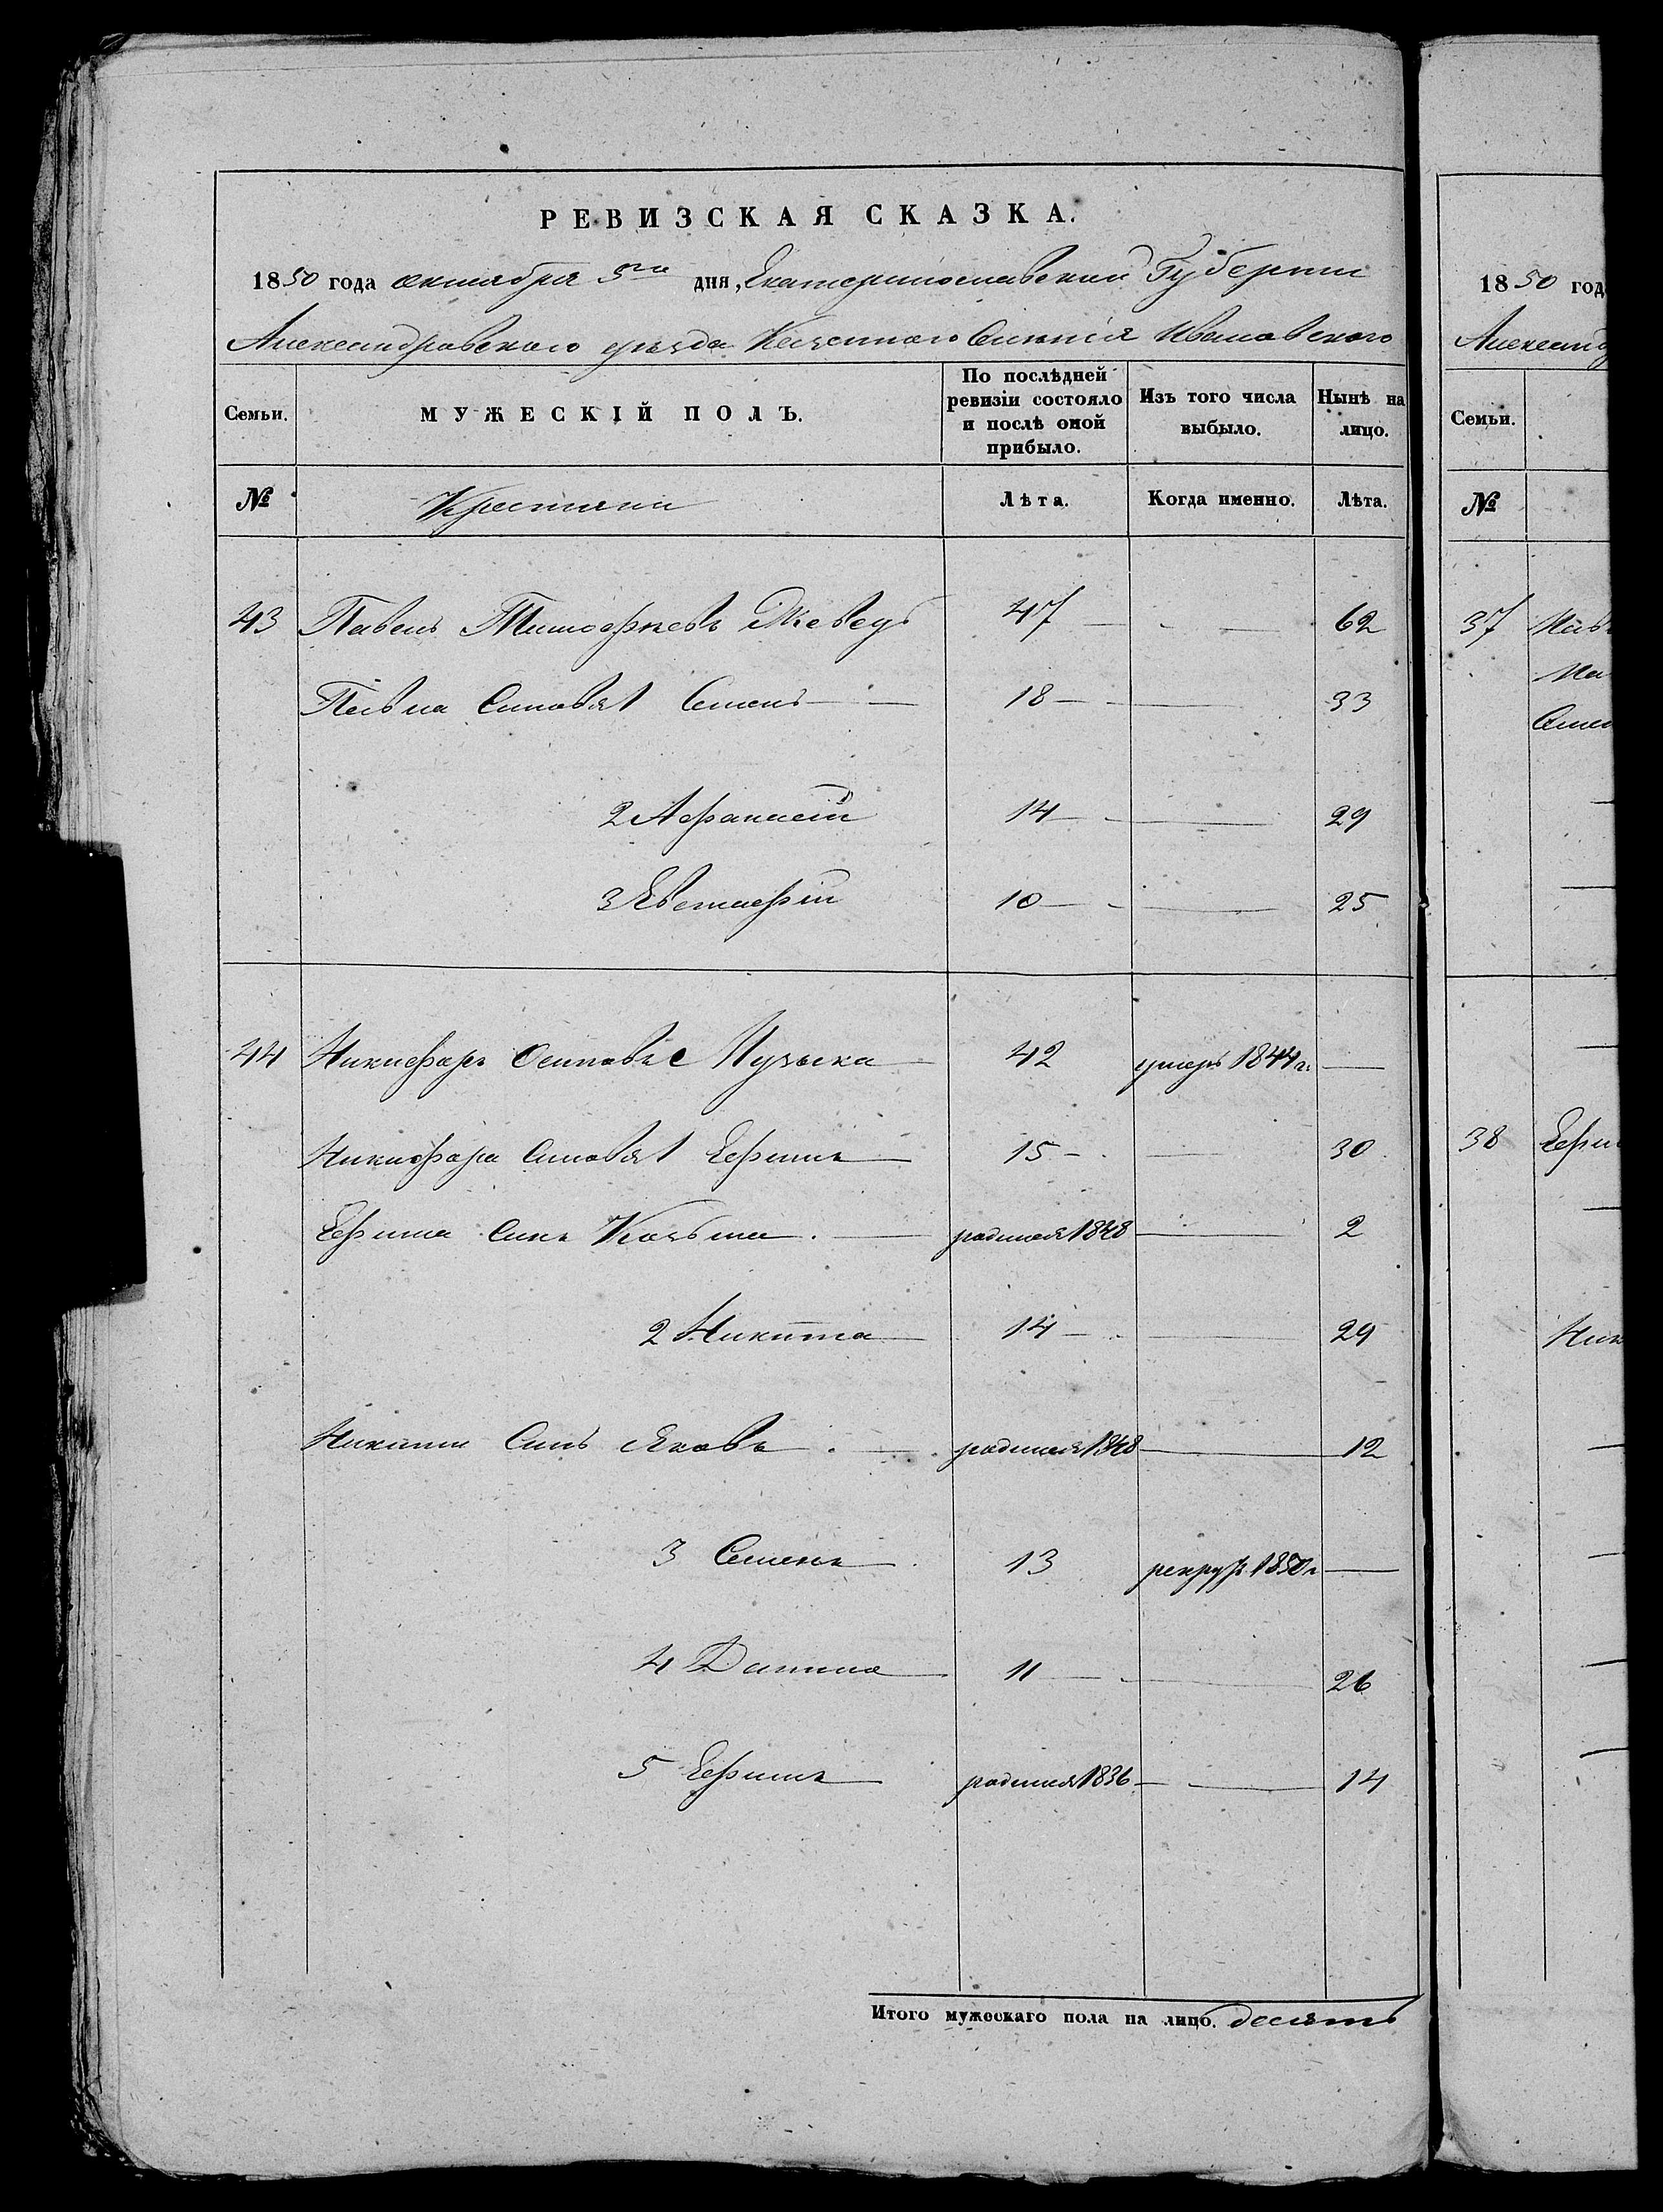 РЕВИЗСКАЯ СКАЗКА.
1850 года октября 5го дня, Екатеринославской Губернии
Александровскаго уезда Казеннаго Ивановскаго
Семьи. МУЖЕСКІЙ ПОЛЪ. По послѣдней ревизіи состояло и послѣ оной прибыло. Изъ того числа выбыло. Нынѣ на лицо.
№ Крестяни Лѣта. Когда именно. Лѣта.
43 Павелъ Тимофѣевъ 47 — — 62
Павла Синовя 1 Семенъ — 18 — — 33
2 Афанасій 14 — — 29
3 Явстафій 10 — — 25
44 Никифоръ Осиповъ Музыка 42 умеръ 1844 г. —
Никифора Синовя 1 Ефимъ — 15 — — 30
Ефима Синъ Козьма — родился 1848 — 2
2 Никита — 14 — — 29
Никиты Синъ Яковъ — родился 1848 — 12
3 Семенъ — 13 рекрут 1850 г —
4 Данило — 11 — — 26
5 Ефимъ — родился 1836 — — 14
Итого мужескаго пола на лицо. десять
1850 год
Семьи.
№
37
38